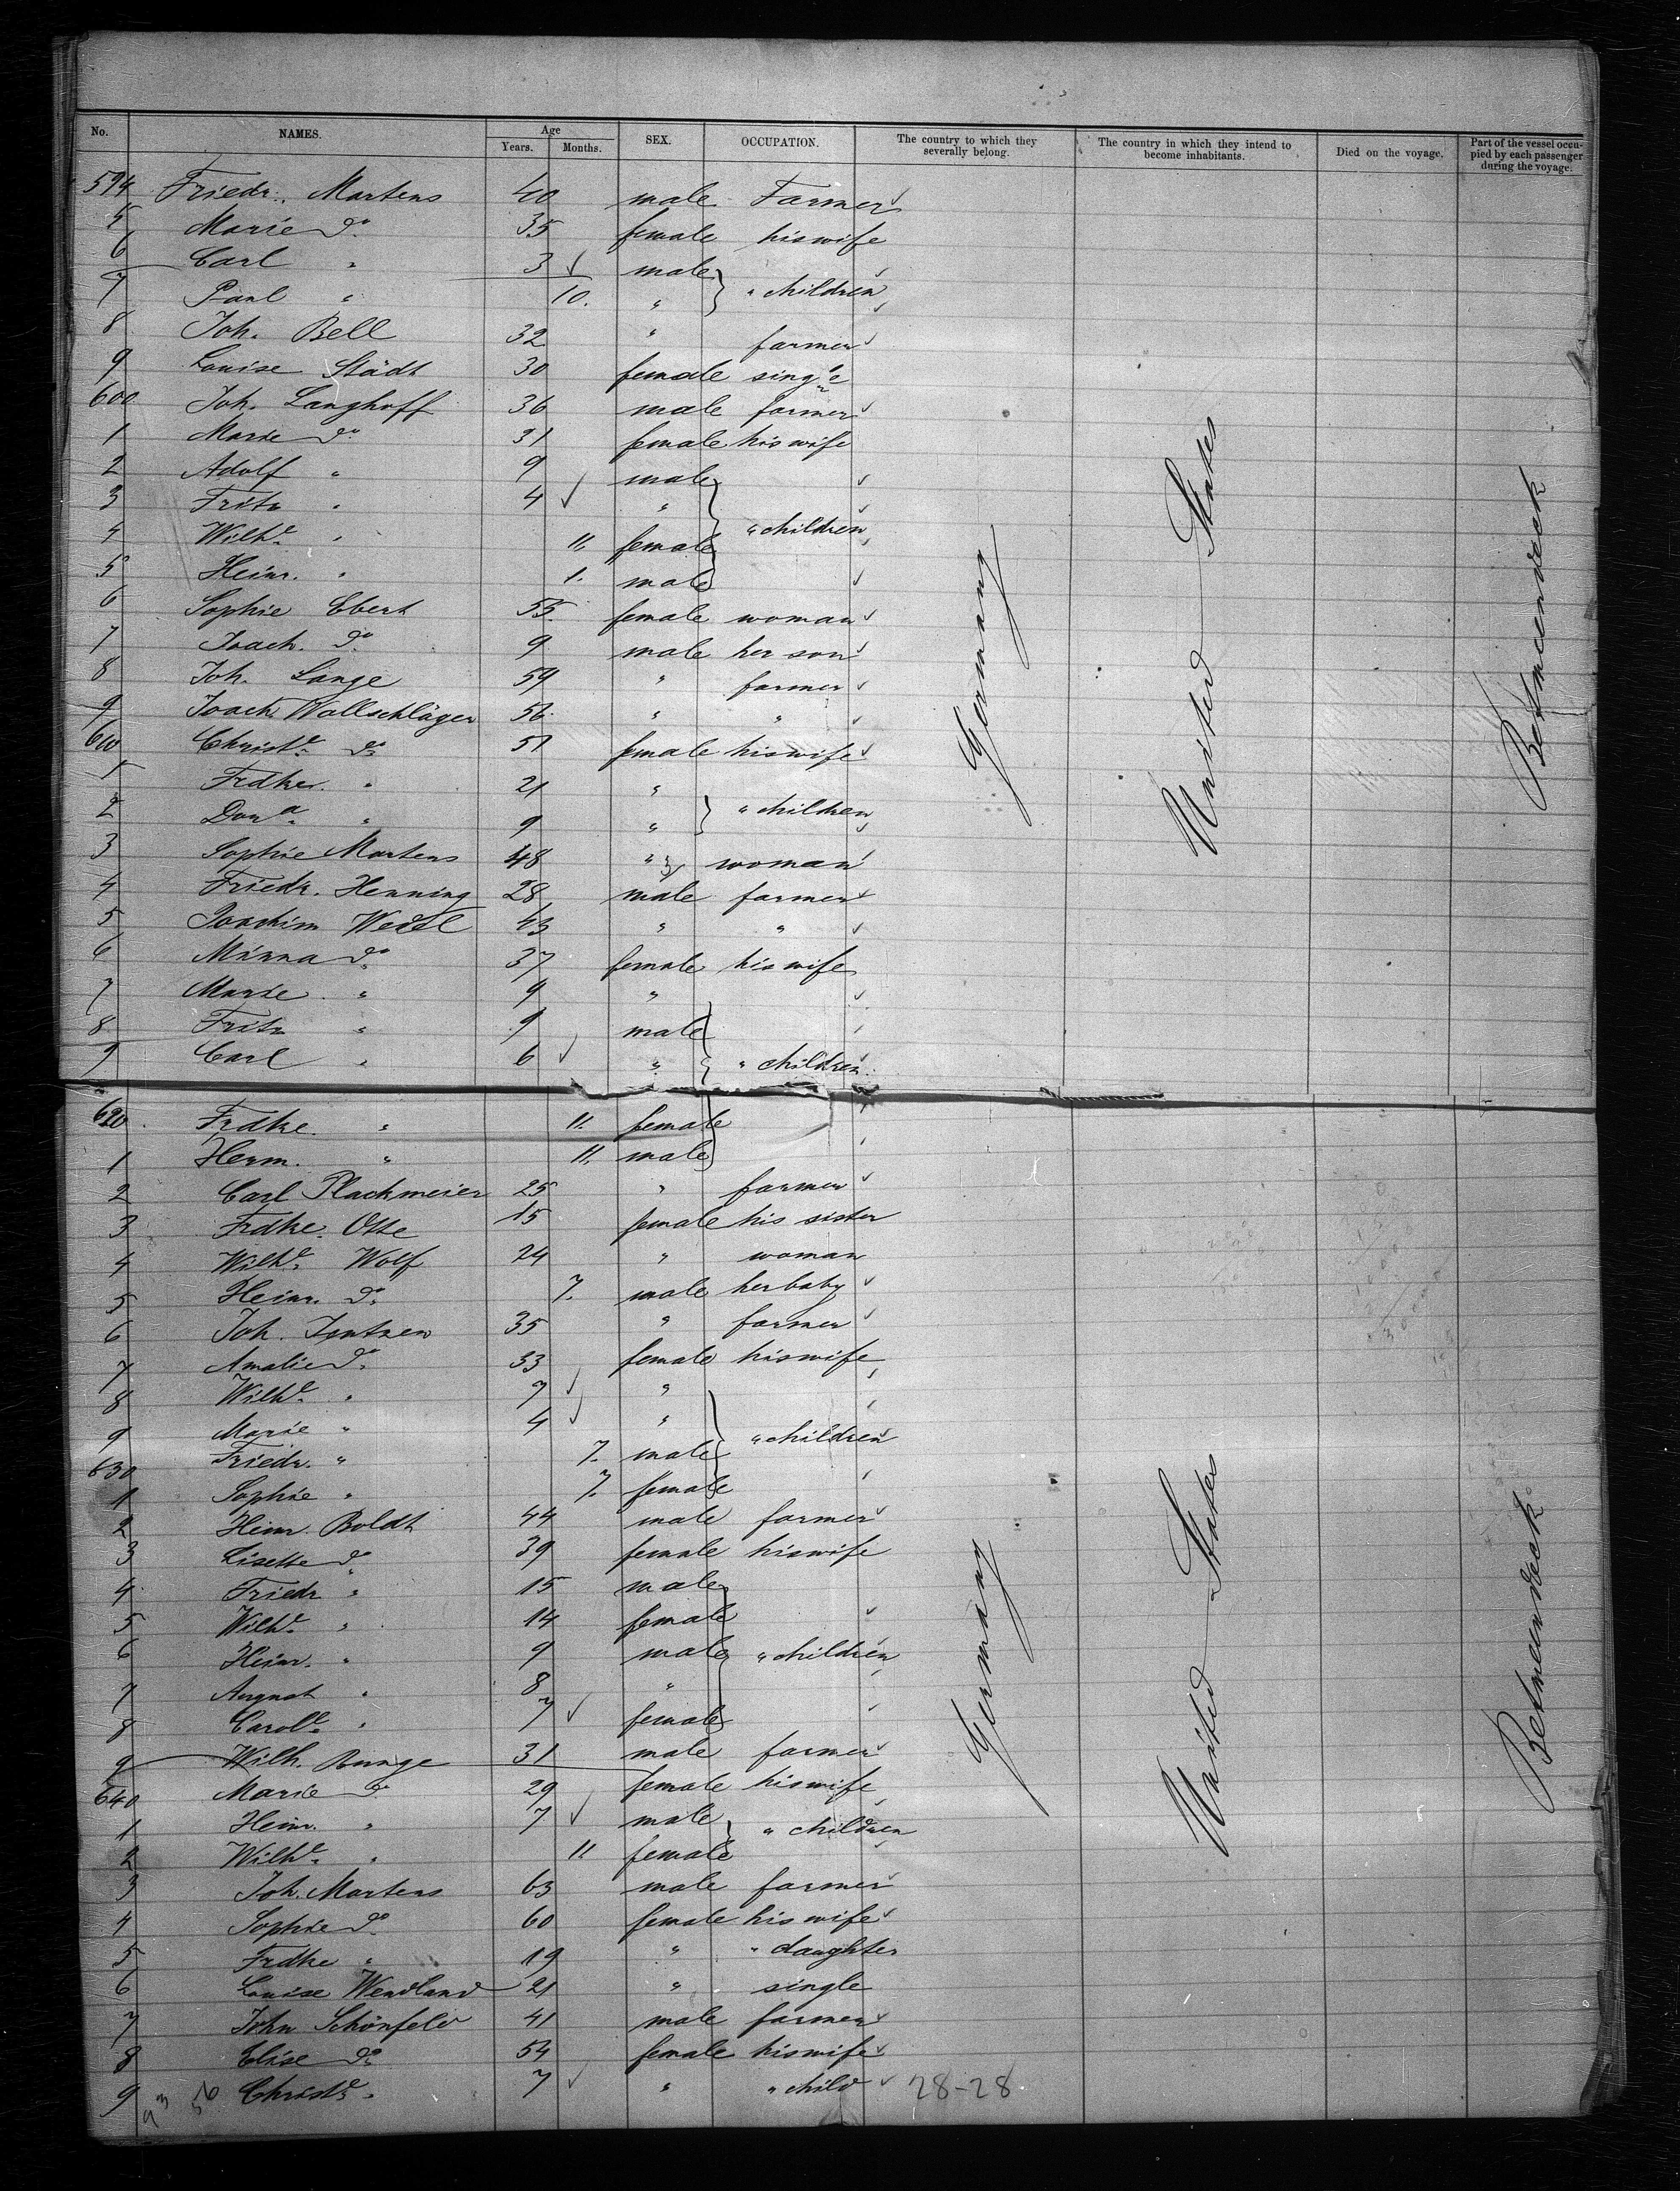 No. NAMES. Age Years. Months. SEX. OCCUPATION. The country to which they severally belong. The country in which they intend to become inhabitants. Died on the voyage. Part of the vessel occupied by each passenger during the voyage.
594 Friedr. Martens 40 male Farmer
5 Marie do 35 female his wife
6 Carl " 3 male
7 Paul " 10. " " children
8 Joh. Bell 32 " farmer
9 Louise Städt 30 female single
600 Joh. Langhoff 36 male farmer
1 Marie do 31 female his wife
2 Adolf " 9 male
3 Fritz " 4 "
4 Wilhe " 11. female " children
5 Heinr. " 1. male
6 Sophie Ebert 55. female woman
7 Joach. do 9 male her son
8 Joh. Lange 59 " farmer
9 Joach. Wollschläger 56 " "
610 Christe do 51 female his wife
1 Frdke. " 21 "
2 Dora " 9 " " children
3 Sophie Martens 48 " woman
4 Friedr. Henning 28 male farmer
5 Joachim Wedel 43 " "
6 Minna do 37 female his wife
7 Marie " 9 "
8 Fritz " 9 male
9 Carl " 6 " " children
Germany United States Betweendeck
620 Frdke. " 11. female
1 Herm. " 11. male
2 Carl Plackmeier 25 " farmer
3 Frdke. Otte 15 female his sister
4 Wilhe Wolf 24 " woman
5 Heinr. do 7. male her baby
6 Joh. Jentzen 35 " farmer
7 Amalie do 33 female his wife
8 Wilhe " 7 "
9 Marie " 4 " " children
630 Friedr. " 7. male
1 Sophie " 7. female
2 Heinr. Boldt 44 male farmer
3 Lisette do 39 female his wife
4 Friedr " 15 male
5 Wilhe " 14 female
6 Heinr. " 9 male " children
7 August " 8 "
8 Carole " 7 female
9 Wilh. Runge 31 male farmer
640 Marie do 29 female his wife
1 Heinr. " 7 male " children
2 Wilhe " 11 female
3 Joh. Martens 63 male farmer
4 Sophie do 60 female his wife
5 Frdke " 19 " " daughter
6 Louise Wendland 21 " single
7 John Schönfeld 41 male farmer
8 Elise do 54 female his wife
9 Christe " 7 " " child 28-28
Germany United States Betweendeck